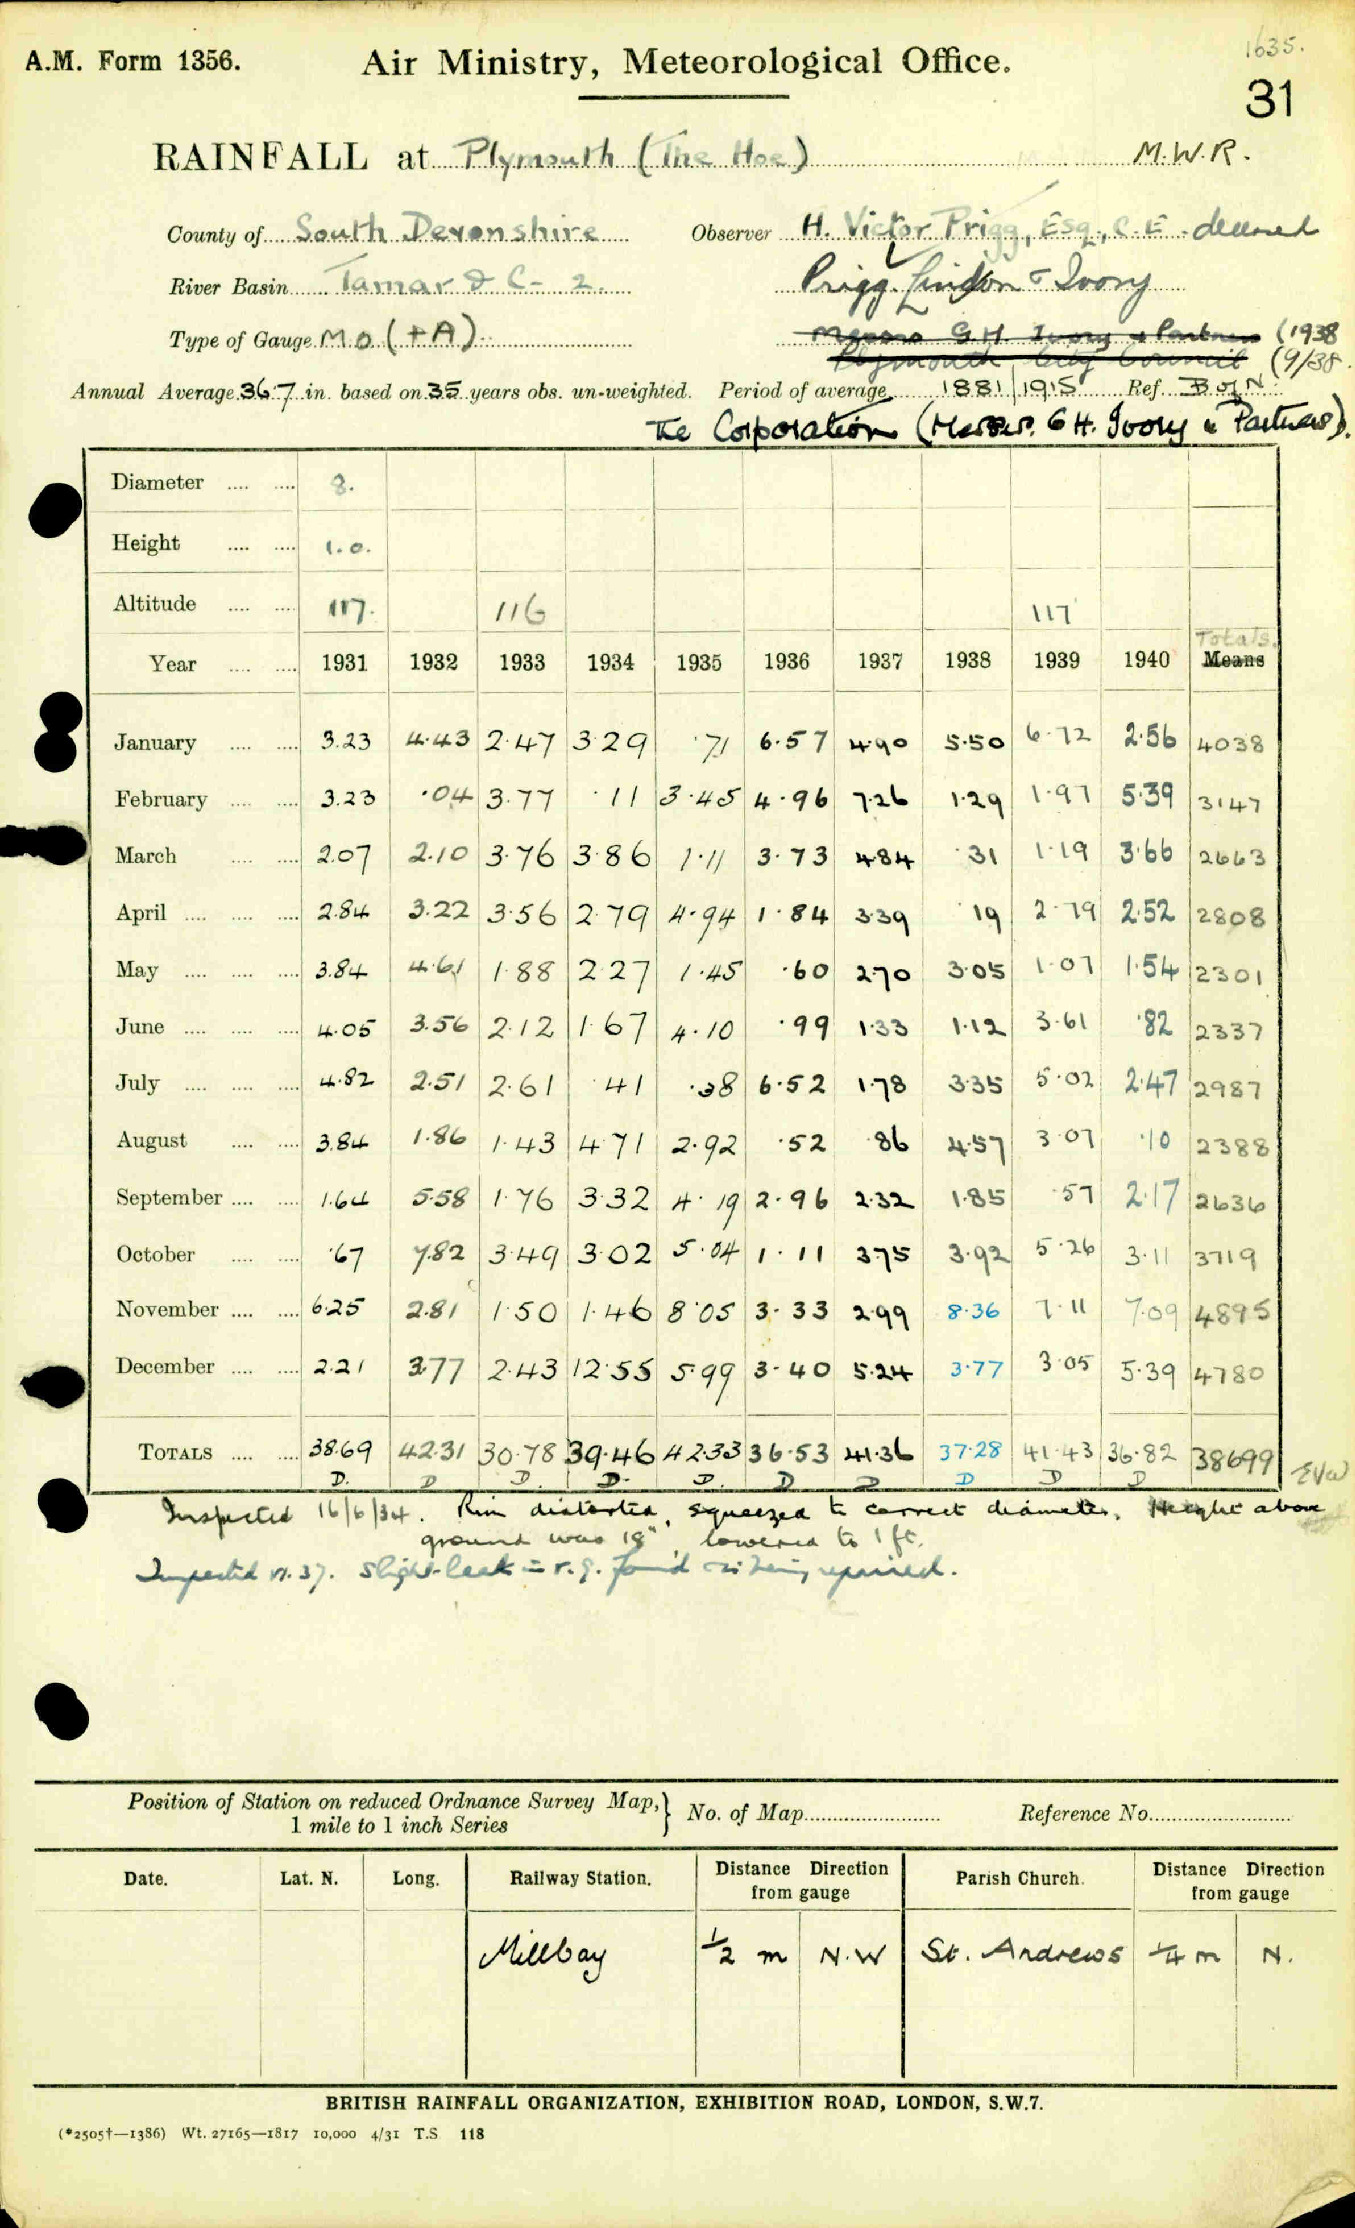 1635.
A.M. Form 1356. Air Ministry, Meteorological Office.
31
RAINFALL at Plymouth (The Hoe) M.W.R.
County of South Devonshire Observer H. Victor Prigg, Esq., C.E. deceased
River Basin Tamar & C- 2. Prigg Lindon & Ivory
Type of Gauge MO (+A) Messrs G.H. Ivory & Partners (1938
Plymouth City Council (9/38.
Annual Average 36.7 in. based on 35 years obs. un-weighted. Period of average 1881/1915 Ref. B of N.
The Corporation (Messrs. G H. Ivory & Partners).
Diameter .... .... 8.
Height .... .... 1.0.
Altitude .... .... 117. 116 117
Totals.
Year .... .... 1931 1932 1933 1934 1935 1936 1937 1938 1939 1940 Means
January .... .... 3.23 4.43 2.47 3.29 .71 6.57 4.90 5.50 6.72 2.56 4038
February .... .... 3.23 .04 3.77 .11 3.45 4.96 7.26 1.29 1.97 5.39 3147
March .... .... 2.07 2.10 3.76 3.86 1.11 3.73 4.84 .31 1.19 3.66 2663
April .... .... .... 2.84 3.22 3.56 2.79 4.94 1.84 3.39 .19 2.79 2.52 2808
May .... .... .... 3.84 4.61 1.88 2.27 1.45 .60 2.70 3.05 1.07 1.54 2301
June .... .... .... 4.05 3.56 2.12 1.67 4.10 .99 1.33 1.12 3.61 .82 2337
July .... .... .... 4.82 2.51 2.61 .41 .38 6.52 1.78 3.35 5.02 2.47 2987
August .... .... 3.84 1.86 1.43 4.71 2.92 .52 .86 4.57 3.07 .10 2388
September .... .... 1.64 5.58 1.76 3.32 4.19 2.96 2.32 1.85 .57 2.17 2636
October .... .... .67 7.82 3.49 3.02 5.04 1.11 3.75 3.92 5.26 3.11 3719
November .... .... 6.25 2.81 1.50 1.46 8.05 3.33 2.99 8.36 7.11 7.09 4895
December .... .... 2.21 3.77 2.43 12.55 5.99 3.40 5.24 3.77 3.05 5.39 4780
TOTALS .... .... 38.69 42.31 30.78 39.46 42.33 36.53 41.36 37.28 41.43 36.82 38699 EVW
D. D D. D. D. D D D D D
Inspected 16/6/34. Rim distorted, squeezed to correct diameter. Height above
ground was 18", lowered to 1 ft.
Inspected 37. slight leak in r.g. found being repaired.
Position of Station on reduced Ordnance Survey Map, } No. of Map Reference No.
1 mile to 1 inch Series
Date. Lat. N. Long. Railway Station. Distance Direction from gauge Parish Church. Distance Direction from gauge
Millbay 1/2 m N.W St. Andrews 1/4 m N.
BRITISH RAINFALL ORGANIZATION, EXHIBITION ROAD, LONDON, S.W.7.
(*2505†—1386) Wt. 27165—1817 10,000 4/31 T.S 118